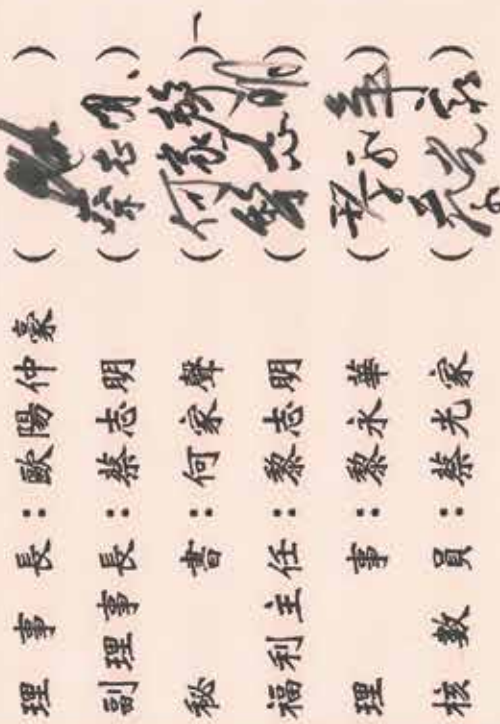 理事長：歐陽仲豪（　）
副理事長：蔡志明（蔡志明）
秘書：何家聲（何家聲）
福利主任：黎志明（黎志明）
理事：黎永華（黎永華）
核數員：蔡光家（蔡光家）